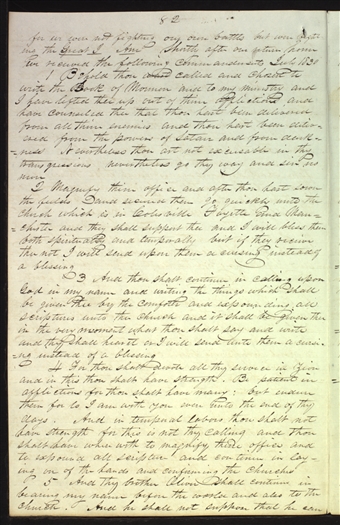 82
for we were not fighting our own battles but were
ing the great I Am Shortly after our return from
we received the following Commandments July 1830
1 Behold thou wast called and chosen to
write the Book of Mormon and to my ministry and
I have lifted thee up out of thine afflictions and
have counseled thee that thou hast been delivered
from all thine enemies and thou hast been deliv
ered from the powers of satan and from dark
ness Nevertheless thou art not excusable in thy
transgressions nevertheless go thy way and sin no
more
2 Magnify thine office and after thou hast sowed
the fields and secured them Go quickly unto the
Church which is in Colesville Fayette and Man
chester and they shall support thee and I will bless them
both spiritually and temporally but if they receive
thee not I will send upon them a cursing instead of
a blessing
3 And thou shalt continue in calling upon
God in my name and writing the things which shall
be given thee by the Comforter and expounding all
scriptures unto the Church and it shall be given thee
in the very moment what thou shalt say and write
and they shall hear it or I will send unto them a cursi
ng instead of a blessing
4 For thou shalt devote all thy service in Zion
and in this thou shalt have strength. Be patient in
afflictions for thou shalt have many: but endure
them for lo I am with you even unto the end of thy
days. And in temporal labors thou shalt not
have strength for this is not thy calling and thou
shalt have wherewith to magnify thine office and
to expound all scripture and continue in lay
ing on of the hands and confirming the Churches
5 And thy brother Oliver shall continue in
bearing my name before the world and also to the
Church And he shall not suppose that he can